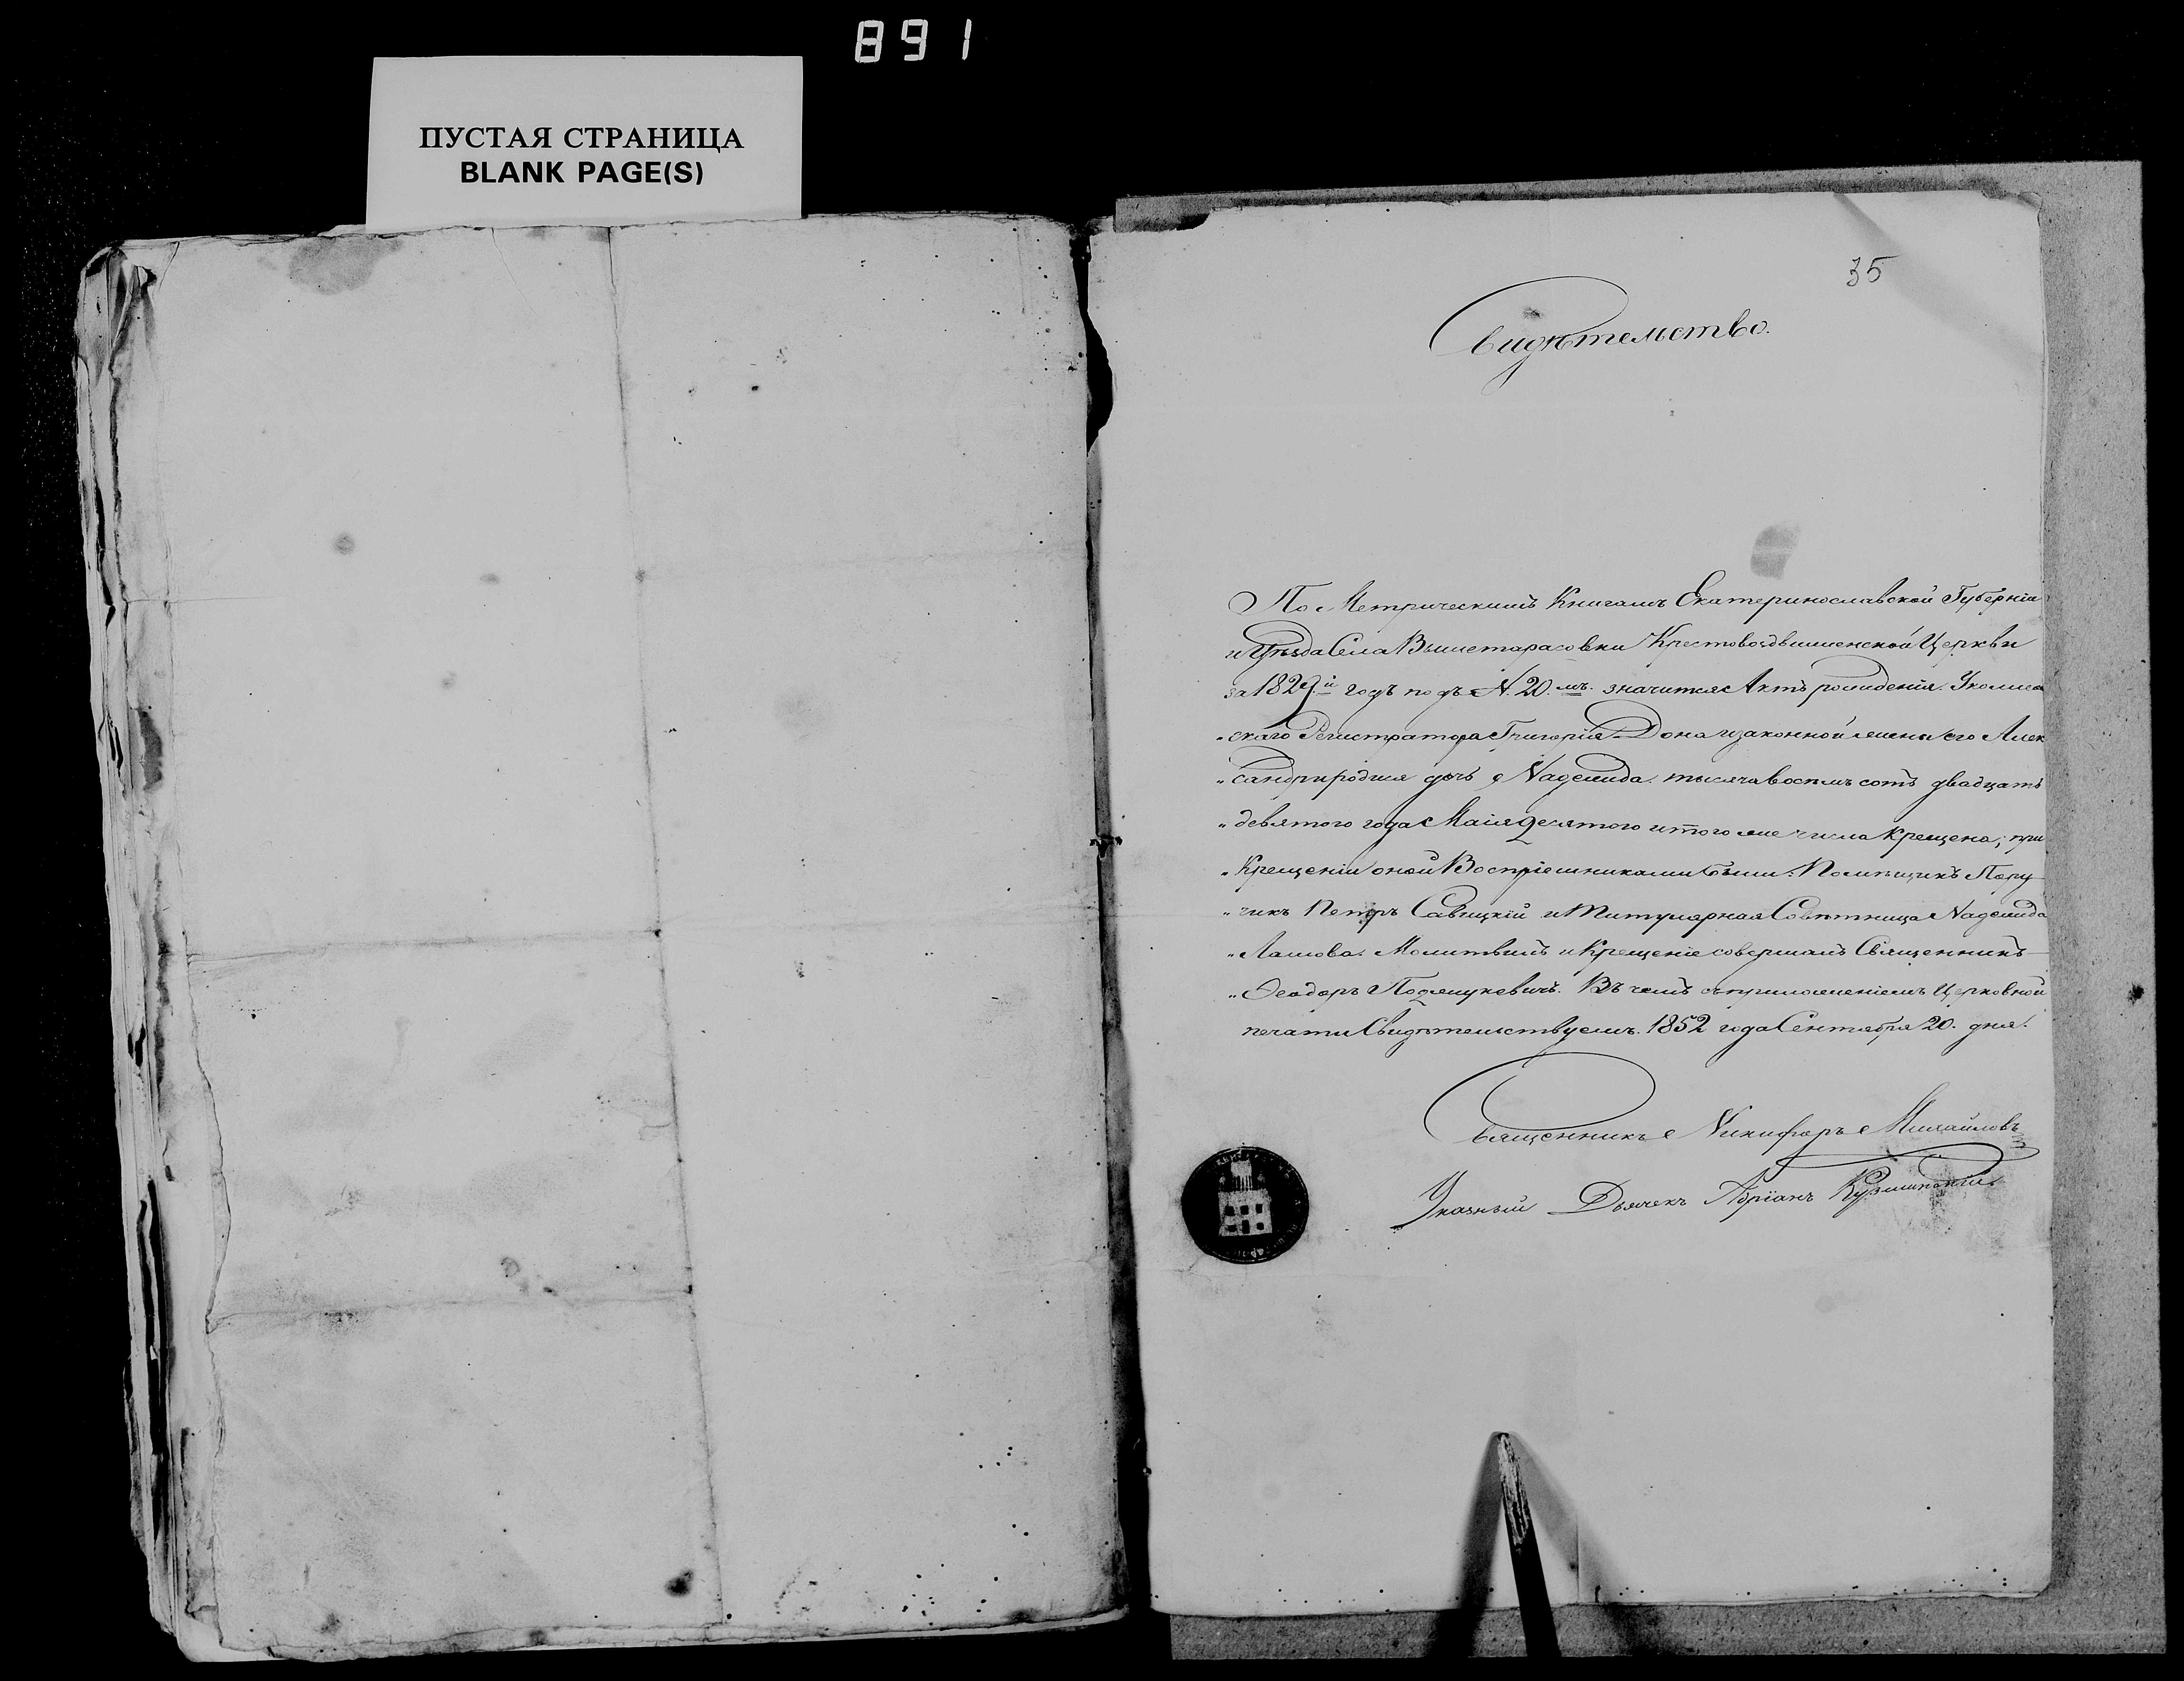 891
ПУСТАЯ СТРАНИЦА
BLANK PAGE(S)
35
Свидѣтельство.
По Метрическимъ Книгамъ Екатеринославской Губерніи
и Уѣзда Села Вышетарасовки Крестовоздвиженской Церкви
за 1829й годъ подъ N. 20.мъ. значится Актъ рожденія. У колеж
„скаго Регистратора Григорія Дона изаконной жены его Алек
„сандри родися дочь Надежда. тысяча восемь сотъ двадцать
„девятого года Маія десятого итого же числа крещена; при
„Крещеніи оной Воспріемниками были: Помѣщикъ Пору
„чикъ Петръ Савицкій и Титулярная Совѣтница Надежда
„Лашова. Молитвилъ и Крещеніе совершалъ Священникъ
„Ѳеодоръ Под. Въ чемъ съприложеніемъ Церковной
печати Свидѣтельствуемъ. 1852 года Сентября 20. дня.
Священникъ Никифоръ Михайловъ
Указный Дьячекъ Адріанъ